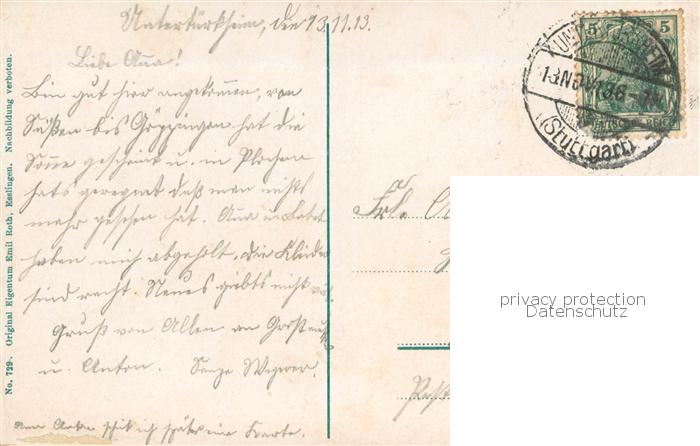 Untertürkheim, den 13.11.13.
Liebe Anna!
Bin gut hier angekommen, von
Süßen bis Göppingen hat die
Sonne gescheint u. in Plochen
hats geregnet daß man nichts
mehr gesehen hat. Anna u. Babet
haben mich abgeholt, die Kleider
sind recht. Neues giebts nicht viel.
Gruß von Allen an
u. Anton. Wegerer.
schik ich später eine Karte.
No. 729. Original Eigentum Emil Roth, Esslingen. Nachbildung verboten.
5 5
13 NOV 13 6-7N
(Stuttgart)
DEUTSCHES REICH
Frl.
Post
privacy protection
Datenschutz